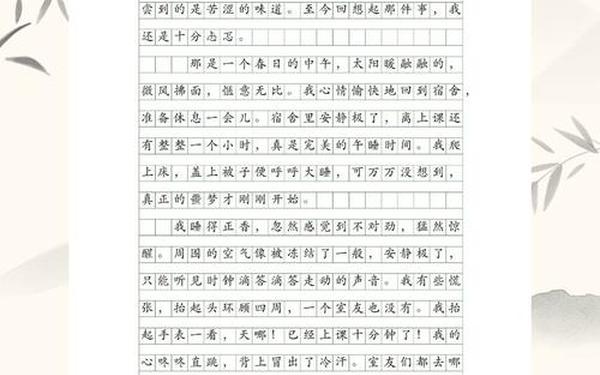 尝到的是苦涩的味道。至今回想起那件事，我
还是十分忐忑。
那是一个春日的中午，太阳暖融融的，
微风拂面，惬意无比。我心情愉快地回到宿舍，
准备休息一会儿。宿舍里安静极了，离上课还
有整整一个小时，真是完美的午睡时间。我爬
上床，盖上被子便呼呼大睡，可万万没想到，
真正的噩梦才刚刚开始。
我睡得正香，忽然感觉到不对劲，猛然惊
醒。周围的空气像被冻结了一般，安静极了，
只能听见时钟滴答滴答走动的声音。我有些慌
张，抬起头环顾四周，一个室友也没有。我抬
起手表一看，天哪！已经上课十分钟了！我的
心咚咚直跳，背上冒出了冷汗。室友们都去哪